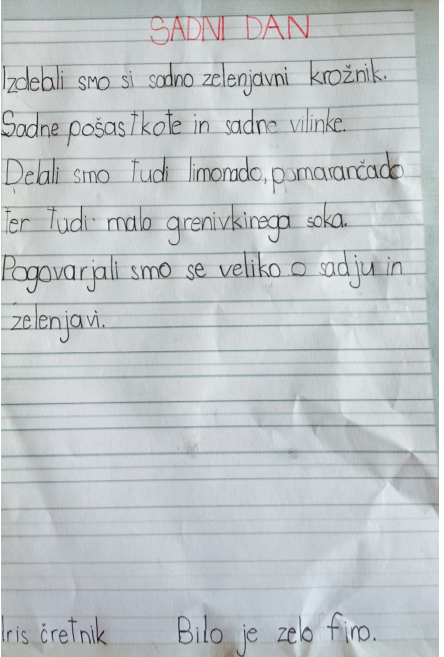 SADNI DAN
Izdelali smo si sadno zelenjavni krožnik.
Sadne pošastkote in sadne vilinke.
Delali smo tudi limonado, pomarančado
ter tudi malo grenivkinega soka.
Pogovarjali smo se veliko o sadju in
zelenjavi.
Iris čretnik Bilo je zelo fino.